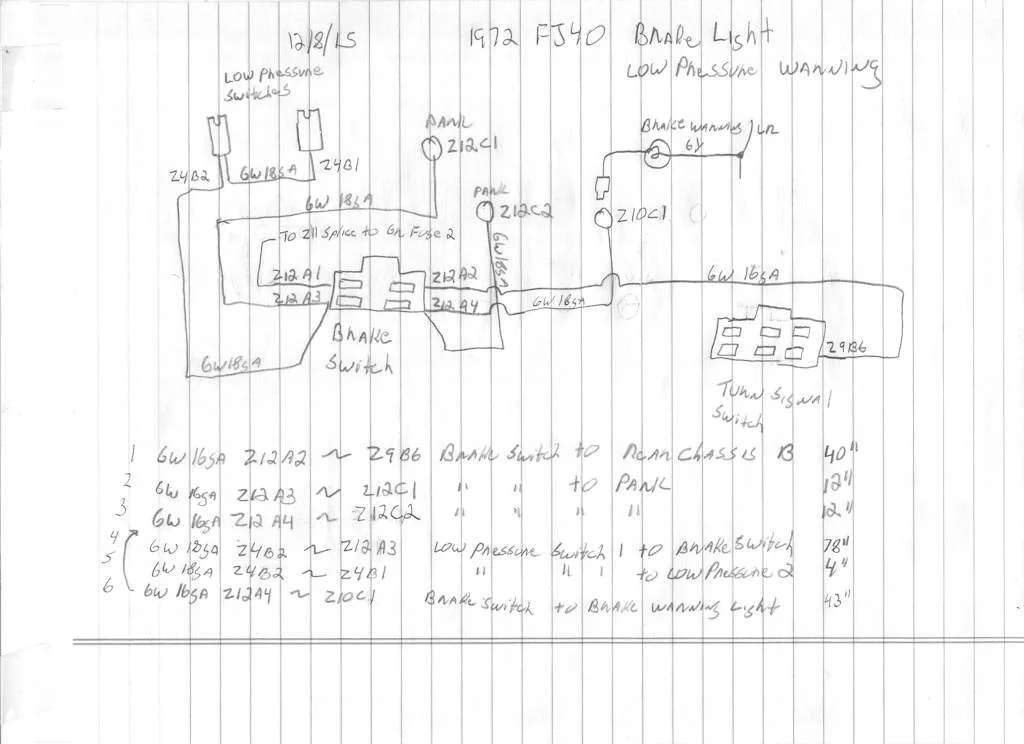 12/8/15
1972 FJ40 Brake Light
Low Pressure Warning
Low Pressure
Switches
Z4B2
GW18gA
Z4B1
PARK
Z12C1
Brake Warning
GY
LR
2
GW 18gA
PARK
Z12C2
Z10C1
To Z11 Splice to GR Fuse 2
GW18gA
Z12A1
Z12A2
GW 16gA
Z12A3
Z12A4
GW 18gA
Brake
Switch
GW18gA
Z9B6
Turn Signal
Switch
1 GW 16gA Z12A2 ~ Z9B6 Brake Switch to Rear Chassis B 40"
2 GW 16gA Z12A3 ~ Z12C1 " " to PARK 12"
3 GW 16gA Z12A4 ~ Z12C2 " " " " 12"
4 GW 18gA Z4B2 ~ Z12A3 Low Pressure Switch 1 to Brake Switch 78"
5 GW 18gA Z4B2 ~ Z4B1 " " 1 to Low Pressure 2 4"
6 GW 16gA Z12A4 ~ Z10C1 Brake Switch to Brake Warning Light 43"